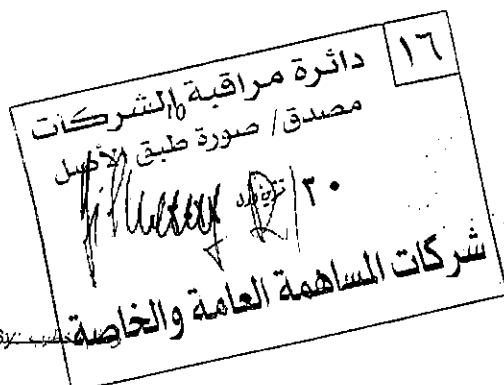 ١٦
دائرة مراقبة الشركات
مصدق / صورة طبق الأصل
٣٠
شركات المساهمة العامة والخاصة